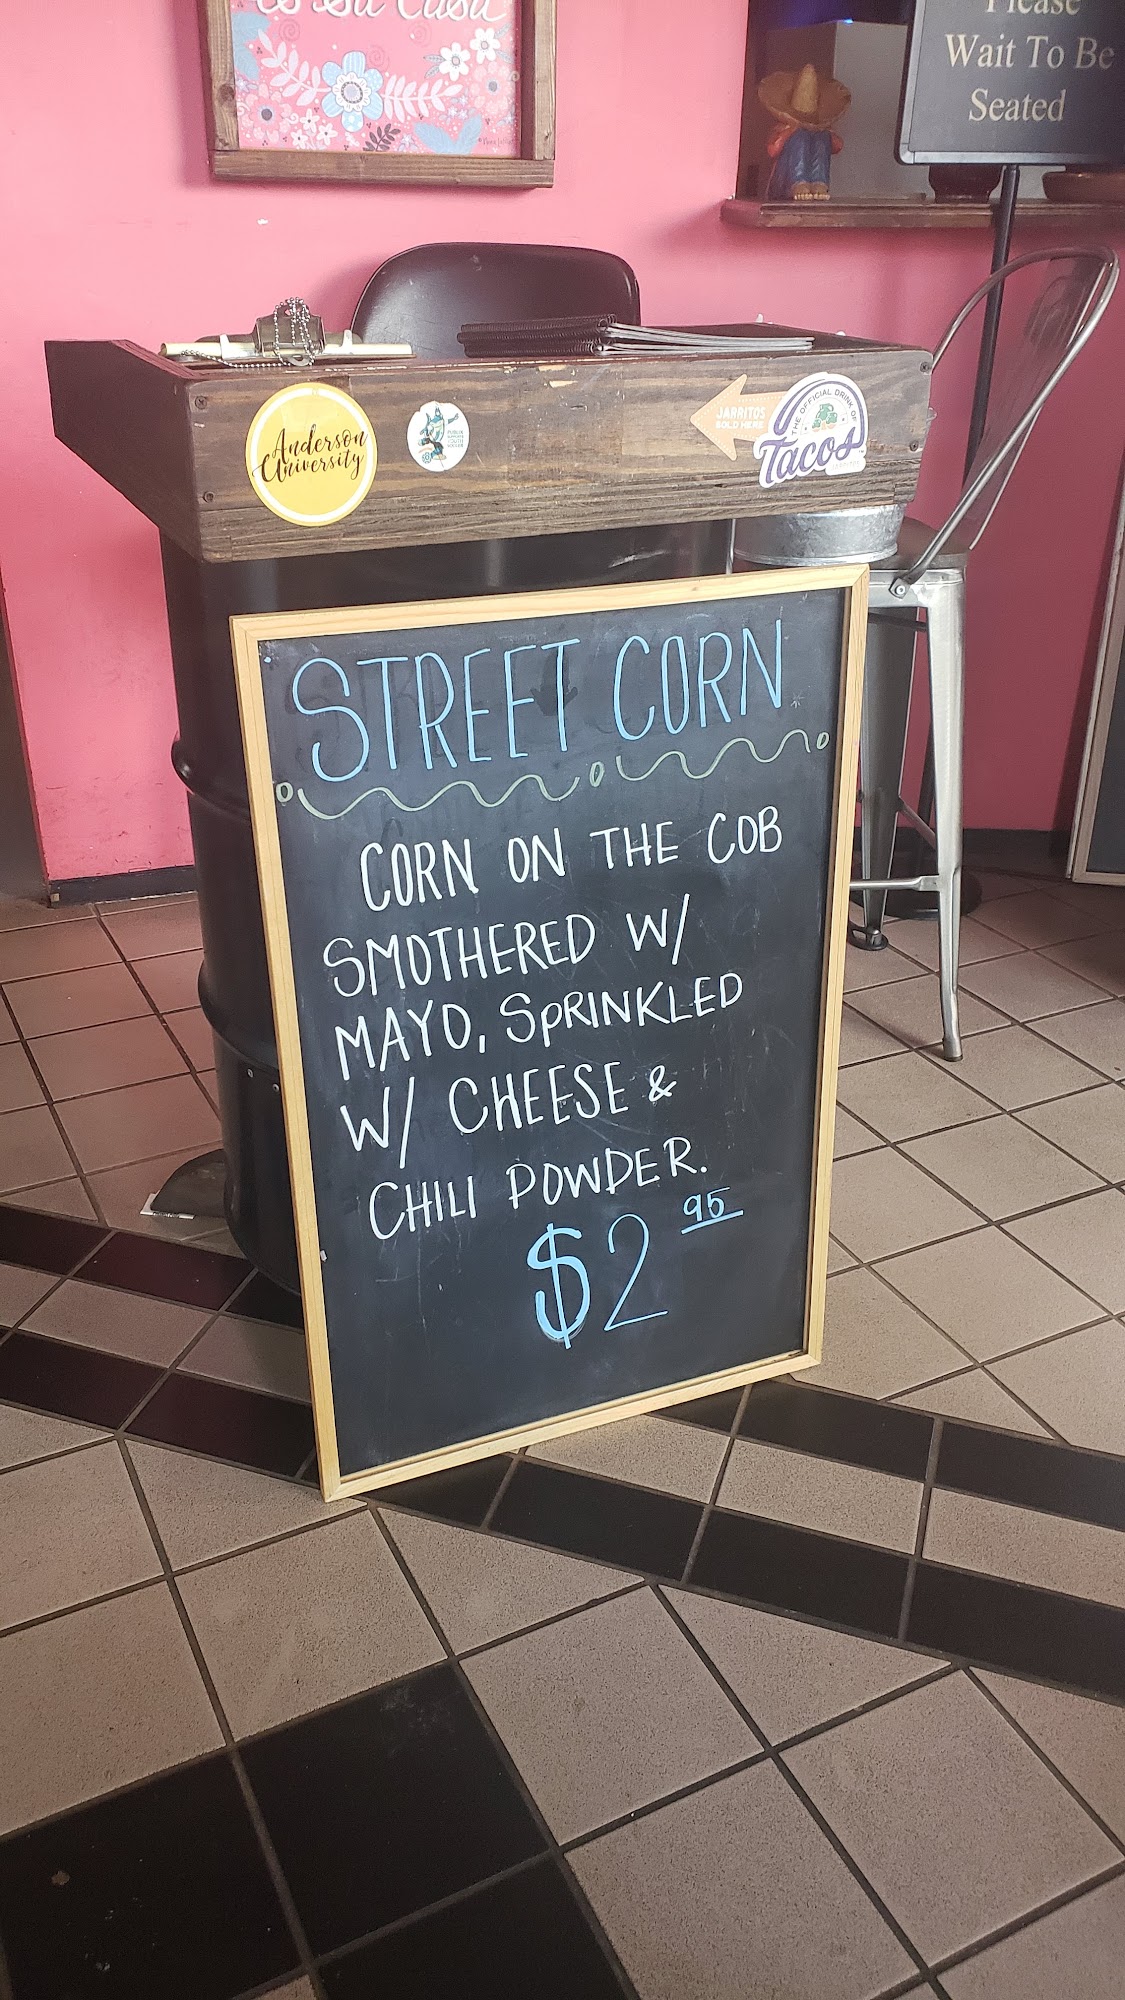 es Su Casa
Please
Wait To Be
Seated
Anderson
University
JARRITOS
SOLD HERE
THE OFFICIAL DRINK OF
Tacos
STREET CORN
CORN ON THE COB
SMOTHERED W/
MAYO, SPRINKLED
W/ CHEESE &
CHILI POWDER.
$2 95